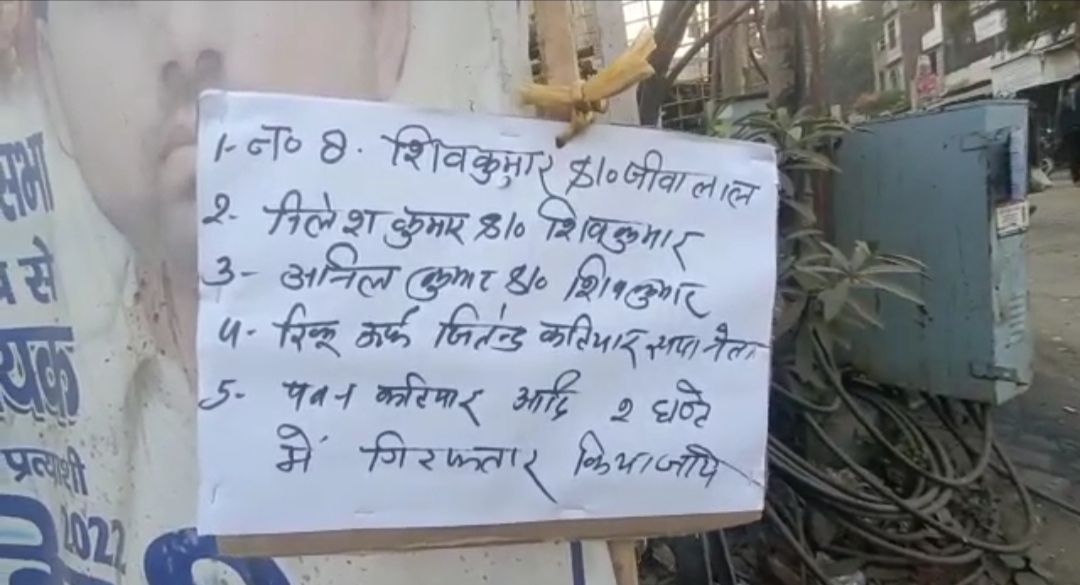 सभा
से
यक
प्रत्याशी
2022
1- न० 8. शिवकुमार S/o जीवालाल
2- निलेश कुमार S/o शिवकुमार
3- अनिल कुमार S/o शिवकुमार
4- रिंकू उर्फ जितेन्द्र कटियार सपा नेता
5- पवन कटियार आदि २ घण्टे
में गिरफ्तार किया जाये